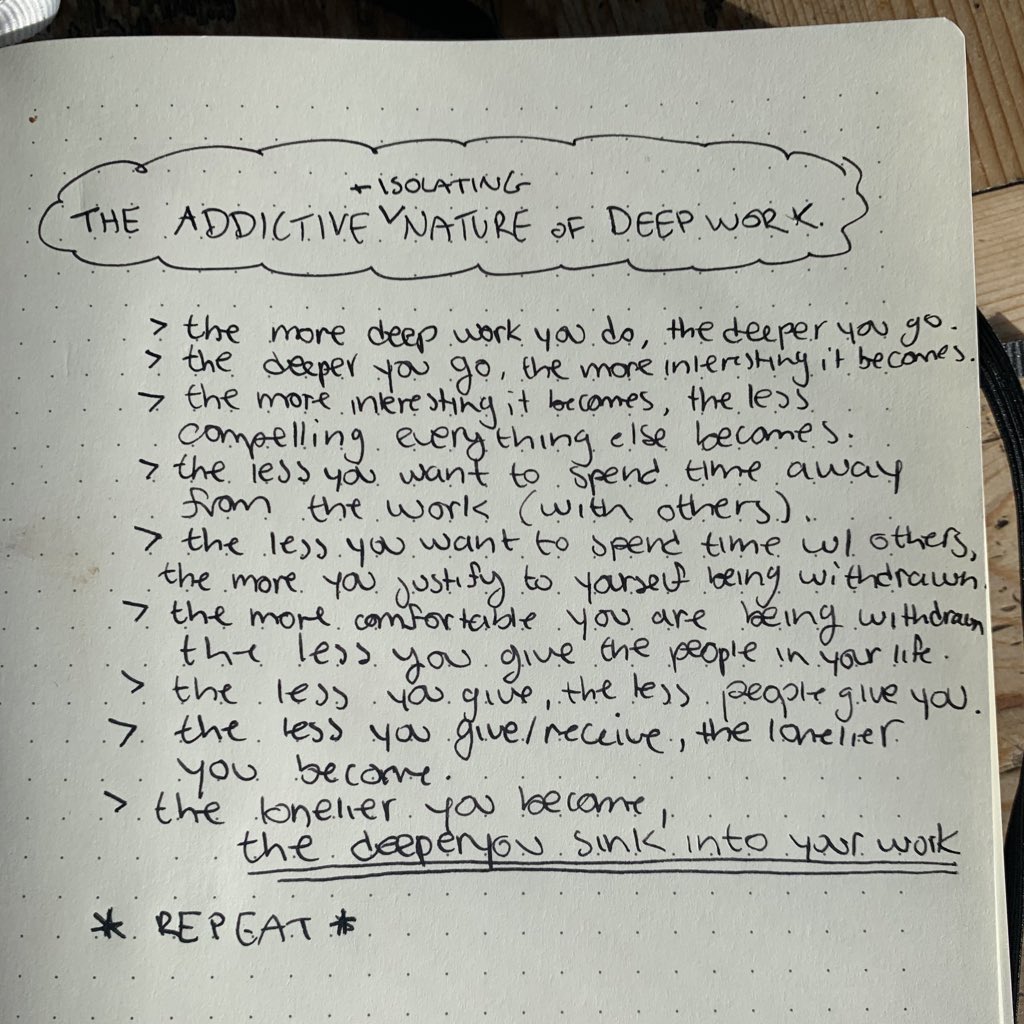 + ISOLATING
THE ADDICTIVE ˅ NATURE OF DEEP WORK.
> the more deep work you do, the deeper you go.
> the deeper you go, the more interesting it becomes.
> the more interesting it becomes, the less
compelling everything else becomes.
> the less you want to spend time away
from the work (with others).
> the less you want to spend time w/ others,
the more you justify to yourself being withdrawn.
> the more comfortable you are being withdrawn
the less you give the people in your life.
> the less you give, the less people give you.
> the less you give/receive, the lonelier
you become.
> the lonelier you become,
the deeper you sink into your work
* REPEAT *